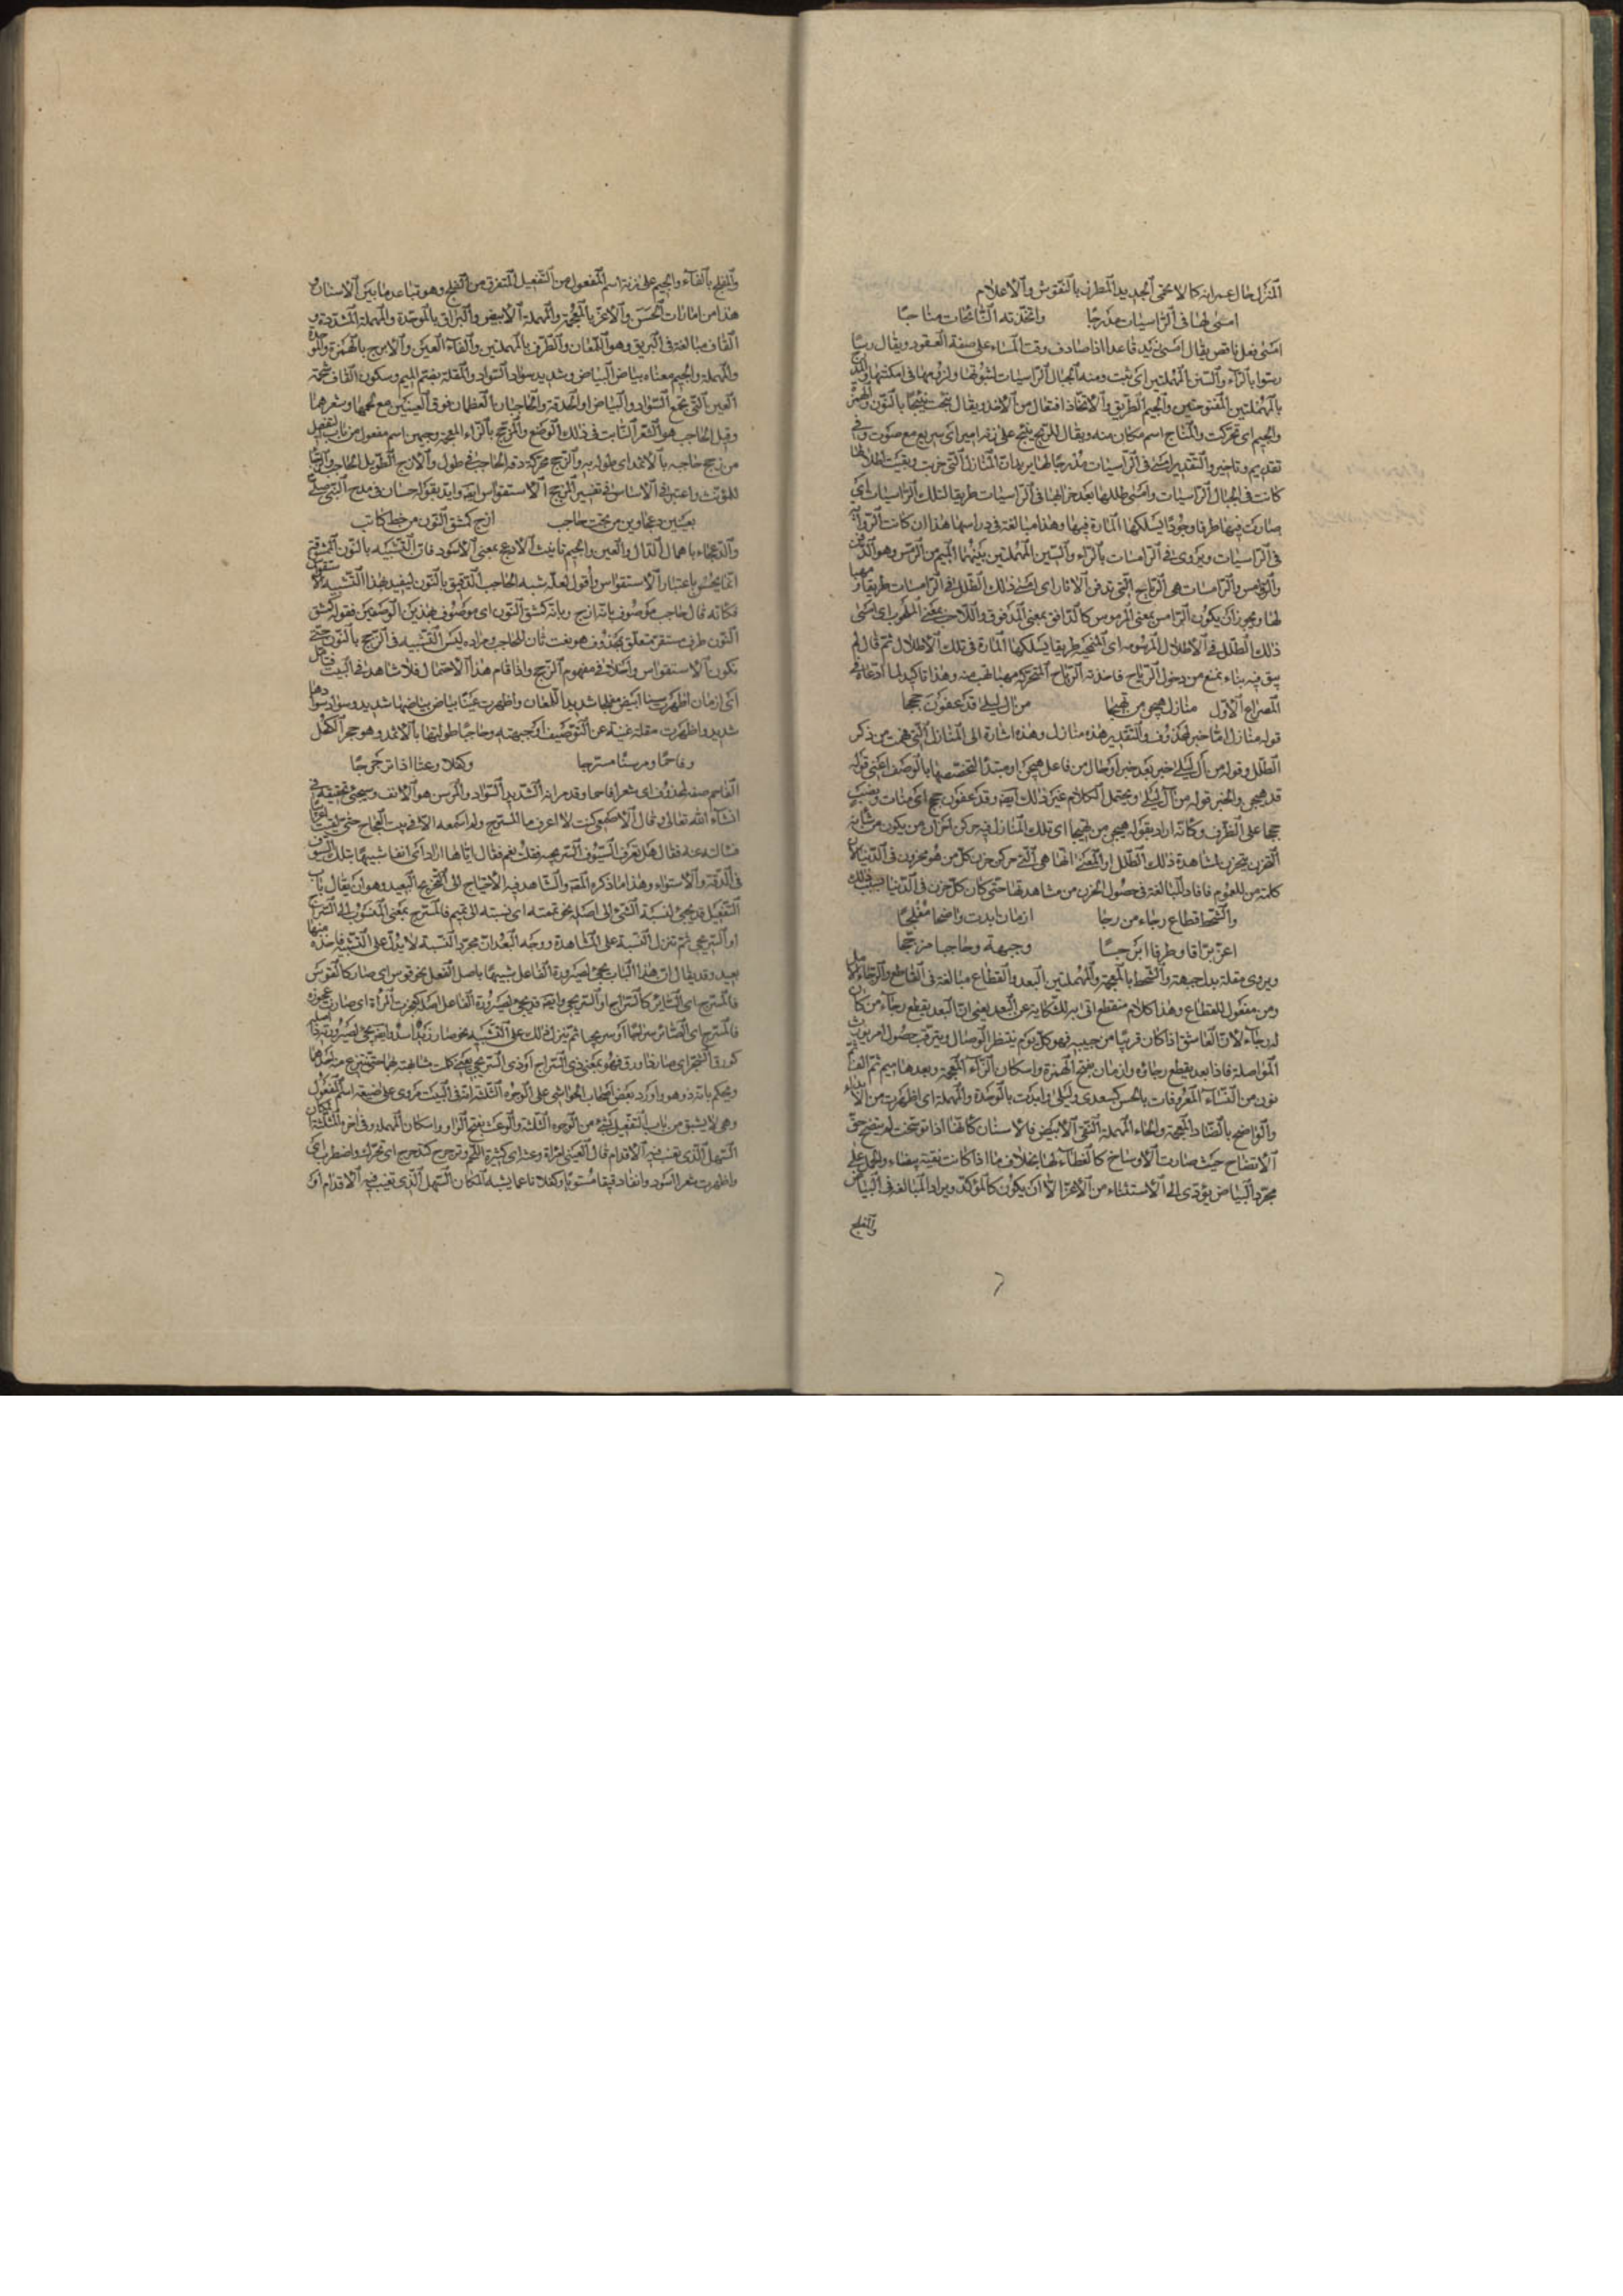 المنزل حال عمرانه كالاتحمى الجديد المطرف بالنقوش والاعلام
امسى لها فى الراسيات مدرجا واتخذته النائجات مناجا
امسى فعل ناقص يقال امسى زيد قاعدا اذا صادف وقت المساء على صفة العقود ويقال رسا
رسوا بالراء والسين المهملتين اى ثبت ومنه الجبال الراسيات لثبوتها ولزومها فى امكنتها والمدرج
بالمهملتين المفتوحتين والجيم الطريق والاتخاذ افتعال من الاخذ ويقال نئجت نئيجا بالنون والهمزة
والجيم اى تحركت والمناج اسم مكان منه ويقال للريح ينئج على زفر امير اى سريع مع صوت وفى
تقديم وتاخير والتقدير امسى فى الراسيات مدرجا لها يريد ان المنازل التى خربت وبقيت اطلالها
كانت فى الجبال الراسيات وامسى طللها بعد خرابها فى الراسيات طريقا لتلك الراسيات اى
صارت فيها طرقا وجودا يسلكها المارة فيها وهذا مبالغة فى دراسها هذا ان كانت الرواية
فى الراسيات ويروى فى الرامسات بالراء والسين المهملتين بينهما الميم من الرمس وهو الدفن
والروامس والرامسات هى الرياح التى تدفن الاثار اى امسى ذلك الطلل فى الرامسات طريقا ومهبا
لها ويجوز ان يكون الرامس بمعنى المرموس كالدافق بمعنى المدفوق واللاحب بمعنى الملحوب اى امسى
ذلك الطلل فى الاطلال المرموسة اى المنمحية طريقا يسلكها المارة فى تلك الاطلال ثم قال لم
يبق فيه بناء يمنع من دخول الرياح فاخذته الرياح المتحركة مهبا تهب منه وهذا تاكيد لما ادعاه فى
المصراع الاول منازل هيجن من تهيجا من ال ليلى قد عفون حججا
قوله منازل اما خبر لمحذوف والتقدير هذه منازل وهذه اشارة الى المنازل التى فهمت من ذكر
الطلل وقوله من ال ليلى خبر بعد خبر او حال من فاعل هيجن او مبتدا لتخصصها بالوصف اعنى قوله
قد هيجن والخبر قوله من ال ليلى ويحتمل الكلام غير ذلك ايضا وقد عفون حججا اى سنوات ونصب
حججا على الظرف وكانه اراد بقوله هيجن من تهيجا اى تلك المنازل فيه حركن احزان من يكون من شانه
التحزن يتحزن بمشاهدة ذلك الطلل او المعنى انها هى التى حركن حزن كل من هو محزون فى الدنيا لان
كلمة من للعموم فافاد المبالغة فى حصول الحزن من مشاهدتها حتى كان كل حزن فى الدنيا فبسبب ذلك
والشحط قطاع رجاء من رجا ازمان ابدت واضحا مفلجا
اغر براقا وطرفا ابرجا وجبهة وحاجبا مزججا
ويروى مقلة بدل جبهة والشحط بالمعجمة والمهملتين البعد والقطاع مبالغة فى القاطع والرجاء الامل
ومن مفعول للقطاع وهذا كلام منقطع اتى به للشكاية عن البعد يعنى ان البعد يقطع رجاء من كان
له رجاء لان العاشق اذا كان قريبا من حبيبه فهو كل يوم ينتظر الوصال ويترقب حصول امر يورث
المواصلة فاذا بعد يقطع رجاؤه وازمان بفتح الهمزة واسكان الزاء المعجمة وبعدها ميم ثم الف ثم
نون من النساء المعروفات بالحسن كسعدى وليلى وابدت بالموحدة والمهملة اى اظهرت من الابداء
والواضح بالضاد المعجمة والحاء المهملة النقى الابيض فالاسنان كانها اذا توسخت لم يتضح حق
الاتضاح حيث صارت الاوساخ كالغطاء لها بخلاف ما اذا كانت نقية بيضاء والحمل على
مجرد البياض يؤدى الى الاستغناء من الاغر الا ان يكون كالمؤكد ويراد المبالغة فى البياض
والمفلج
والمفلج بالفاء والجيم على زنة اسم المفعول من التفعيل المتفرق من الفلج وهو تباعد ما بين الاسنان و
هذا من امارات الحسن والاغر بالمعجمة والمهملة الابيض والبراق بالموحدة والمهملة المشددة و
القاف مبالغة فى البريق وهو اللمعان والطرف بالمهملتين والفاء العين والابرج بالهمزة والموحدة
والمهملة والجيم معناه بياض البياض وشديد سواد السواد والمقلة بضم الميم وسكون القاف شحمة
العين التى تجمع السواد والبياض او الحدقة والحاجبان العظمان فوق العينين مع لحمها وشعرهما
وقيل الحاجب هو الشعر الثابت فى ذلك الموضع والمزجج بالزاء المعجمة وجيمين اسم مفعول من باب التفعيل
من زجج حاجبه بالاثمد اى طوله به والزجج محركة دقة الحاجب فى طول والازج الطويل الحاجب والزجا
للمؤنث واعتبر فى الاساس فى تفسير الزجج الاستقواس ايضا وايد بقول حسان فى مدح النبى صلى
بعينين دعجاوين من تحت حاجب ازج كمشق النون من خط كاتب
والدعجاء باهمال الدال والعين والجيم تانيث الادعج بمعنى الاسود فان التشبيه بالنون الممشوقة
انما يحسن باعتبار الاستقواس واقول لعله شبه الحاجب الدقيق بالنون ليفيد بهذا التشبيه الاستقواس
فكانه قال حاجب موصوف بانه ازج وبانه كمشق النون اى موصوف بهذين الوصفين فقوله كمشق
النون ظرف مستقر متعلق بمحذوف هو نعت ثان للحاجب ومراده ليس التشبيه فى الزجج بالنون حتى
تكون الاستقواس داخلا فى مفهوم الزجج واذا قام هذا الاحتمال فلا شاهد فى البيت فتامل
اى ازمان اظهرت سنا ابيض مفلجا شديد اللمعان واظهرت عينا بياض بياضها شديد وسواد سوادها
شديد واظهرت مقلة غنية عن التوصيف او جبهة وحاجبا طولتها بالاثمد وهو حجر الكحل
وفاحما ومرسنا مسرجا وكفلا وعثا اذا ترجرجا
الفاحم صفة لمحذوف اى شعرا فاحما وقد مر انه الشديد السواد والمرسن هو الانف وسيجئ تحقيقه فى
انشاء الله تعالى وقال الاصمعى كنت لا اعرف ما المسرج ولم اسمعه الا فى بيت العجاج حتى لقيت اعرابيا
فسالته عنه فقال هل تعرف السيوف السريجية فقلت نعم فقال اياها اراد اى انفا شبيها بتلك السيوف
فى الدقة والاستواء وهذا ما ذكره المصنف والشاهد فيه الاحتياج الى التخريج البعيد وهو ان يقال باب
التفعيل قد يجئ لنسبة الشئ الى اصله نحو تممته اى نسبته الى تميم فالمسرج بمعنى المنسوب الى السراج
او السريجى ثم تنزل النسبة على المشاهدة ووجه البعد ان مجرد النسبة لا يدل على التشبيه فاخذه منها
بعيد وقد يقال ان هذا الباب يجئ لصيرورة الفاعل شبيها باصل الفعل نحو قوس اى صار كالقوس
فالمسرج اى الصائر كالسراج او السريجى وايضا قد يجئ لصيرورة الفاعل اصله كعجزت المراة اى صارت عجوزة
فالمسرج اى الصائر سراجا او سريجا ثم تنزل ذلك على التشبيه نحو صار زيد اسدا وايضا يجئ لصيرورته ذا اصله
كورق الشجر اى صار ذا ورق فهو بمعنى ذى السراج او ذى السريجى يعنى كملت مشابهته بهما حتى ينتزع منه احدهما
ويحكم بانه ذو هو واورد بعض اصحاب الحواشى على الوجوه الثلثة انه فى البيت مروى على صيغة اسم المفعول
وهى لا يشتق من باب التفعيل بشئ من الوجوه الثلثة والوعث بفتح الواو واسكان المهملة وفى اخره المثلثة المكان
السهل الذى تغيب فيه الاقدام قال العينى امراة وعثة اى كثيرة اللحم وترجرج كتدحرج اى تحرك واضطرب اى
واظهرت شعرا اسود وانفا دقيقا مستويا وكفلا ناعما يشبه المكان السهل الذى تغيب فيه الاقدام او